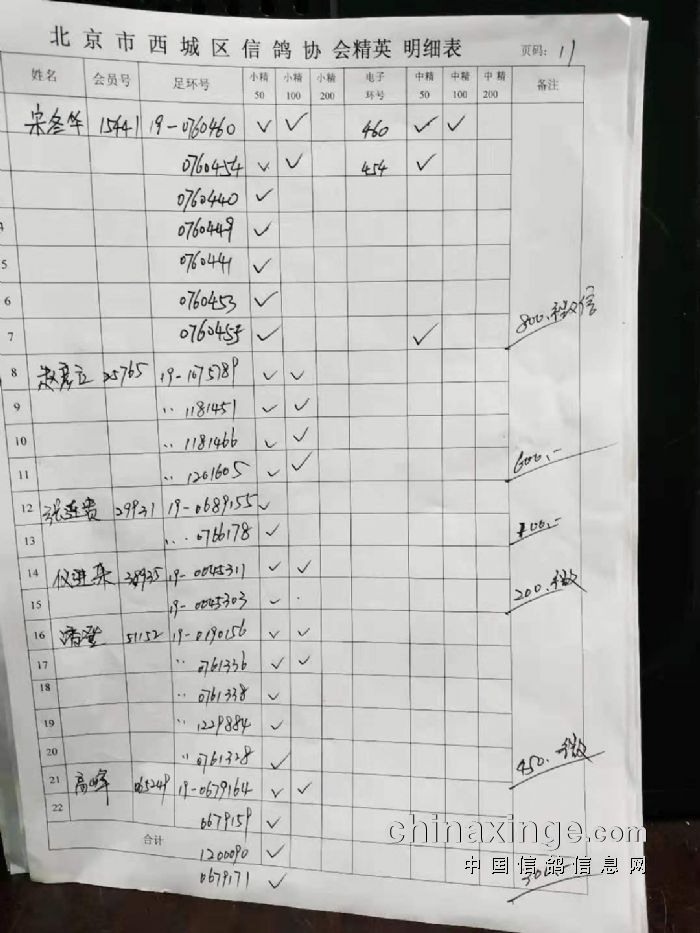 北京市西城区信鸽协会精英明细表 页码: 11
姓名 会员号 足环号 小精50 小精100 小精200 电子环号 中精50 中精100 中精200 备注
15441 19-0760460 ✓ ✓ 460 ✓ ✓
0760454 ✓ ✓ 454 ✓
0760440 ✓
4 0760449 ✓
5 0760441 ✓
6 0760453 ✓
7 0760455 ✓ ✓ 800.
8 25765 19-1075789 ✓ ✓
9 〃 1181451 ✓ ✓
10 〃 1181466 ✓ ✓
11 〃 1201605 ✓ ✓ 600.-
12 张连贵 29931 19-0689155 ✓
13 〃 0766178 ✓ 100.-
14 38935 19-0045311 ✓ ✓
15 19-0045303 ✓ 200.
16 潘澄 51152 19-0190156 ✓ ✓
17 〃 0761336 ✓ ✓
18 〃 0761338 ✓
19 〃 1229884 ✓
20 〃 0761328 ✓ 450.
21 高峰 065249 19-0679164 ✓ ✓
22 0679159 ✓
合计 1200090 ✓
0679171 ✓
chinaxinge.com
中国信鸽信息网